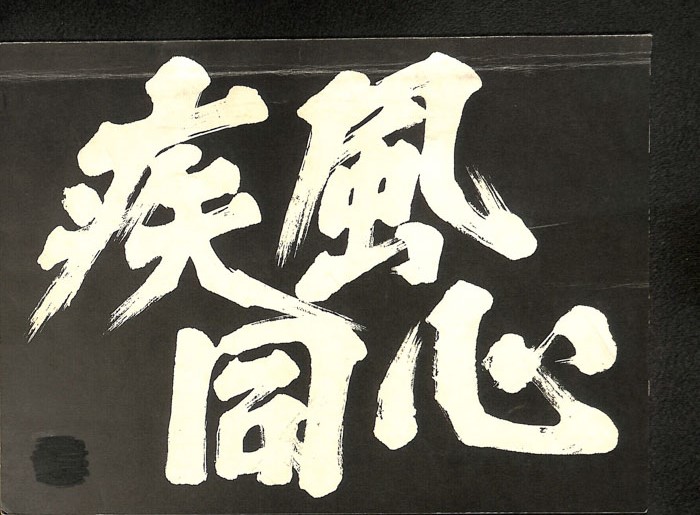 疾風
同心